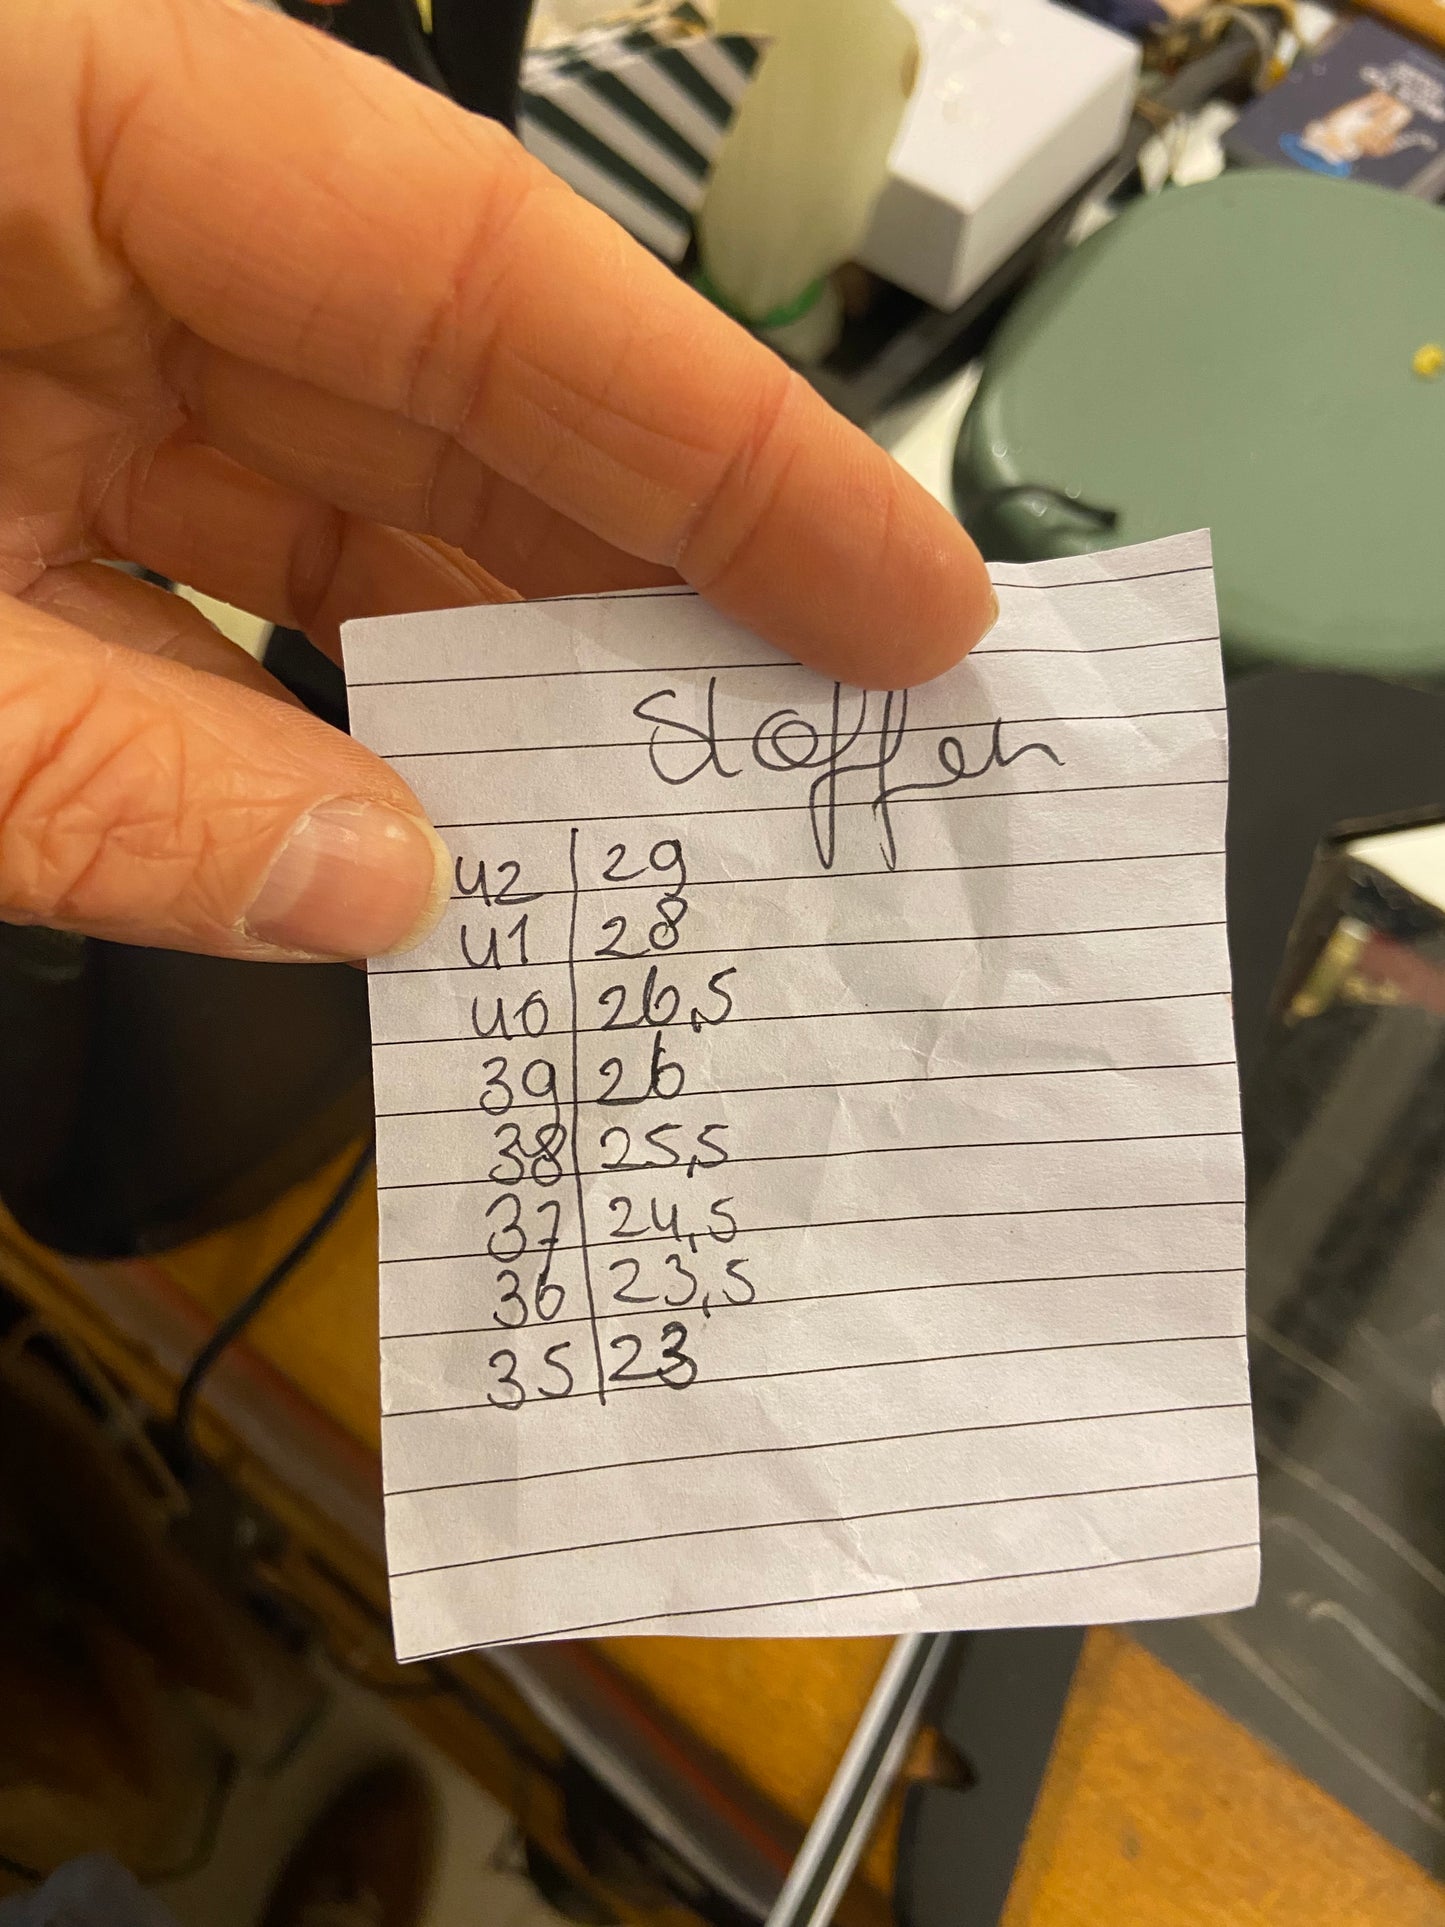 Stoffen
42 | 29
41 | 28
40 | 26,5
39 | 26
38 | 25,5
37 | 24,5
36 | 23,5
35 | 23